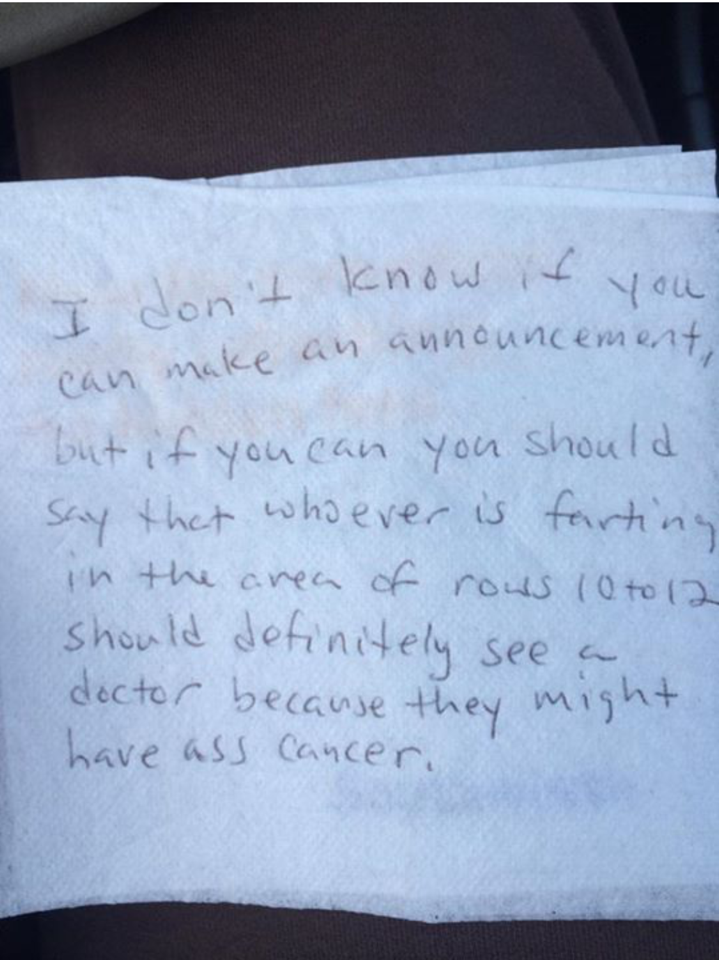 I don't know if you
can make an announcement,
but if you can you should
say that whoever is farting
in the area of rows 10 to 12
should definitely see a
doctor because they might
have ass cancer.